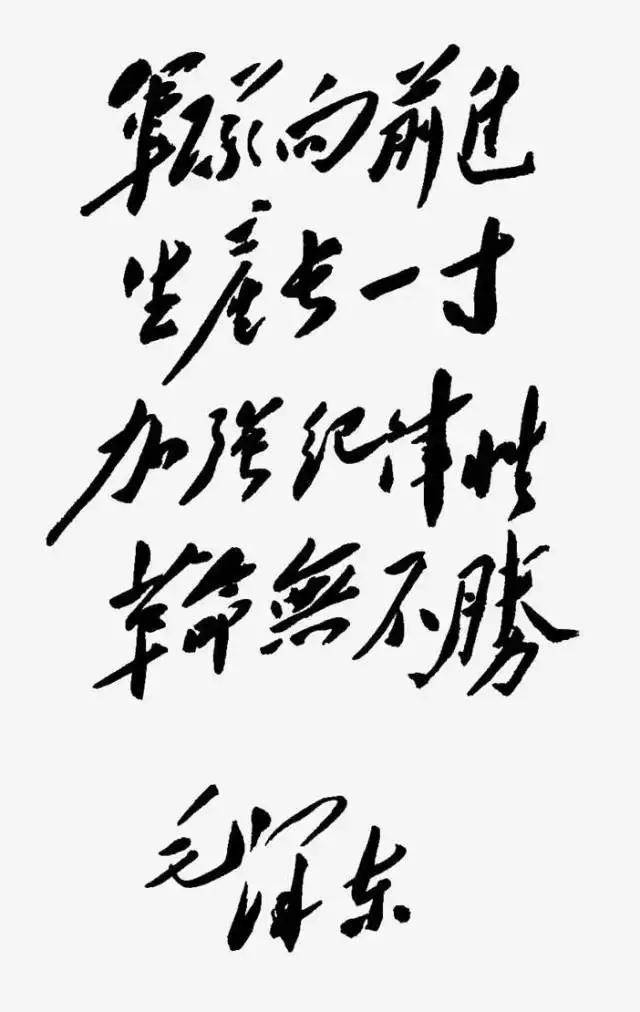 軍队向前進
生產长一寸
加強纪律性
革命無不勝
毛泽东